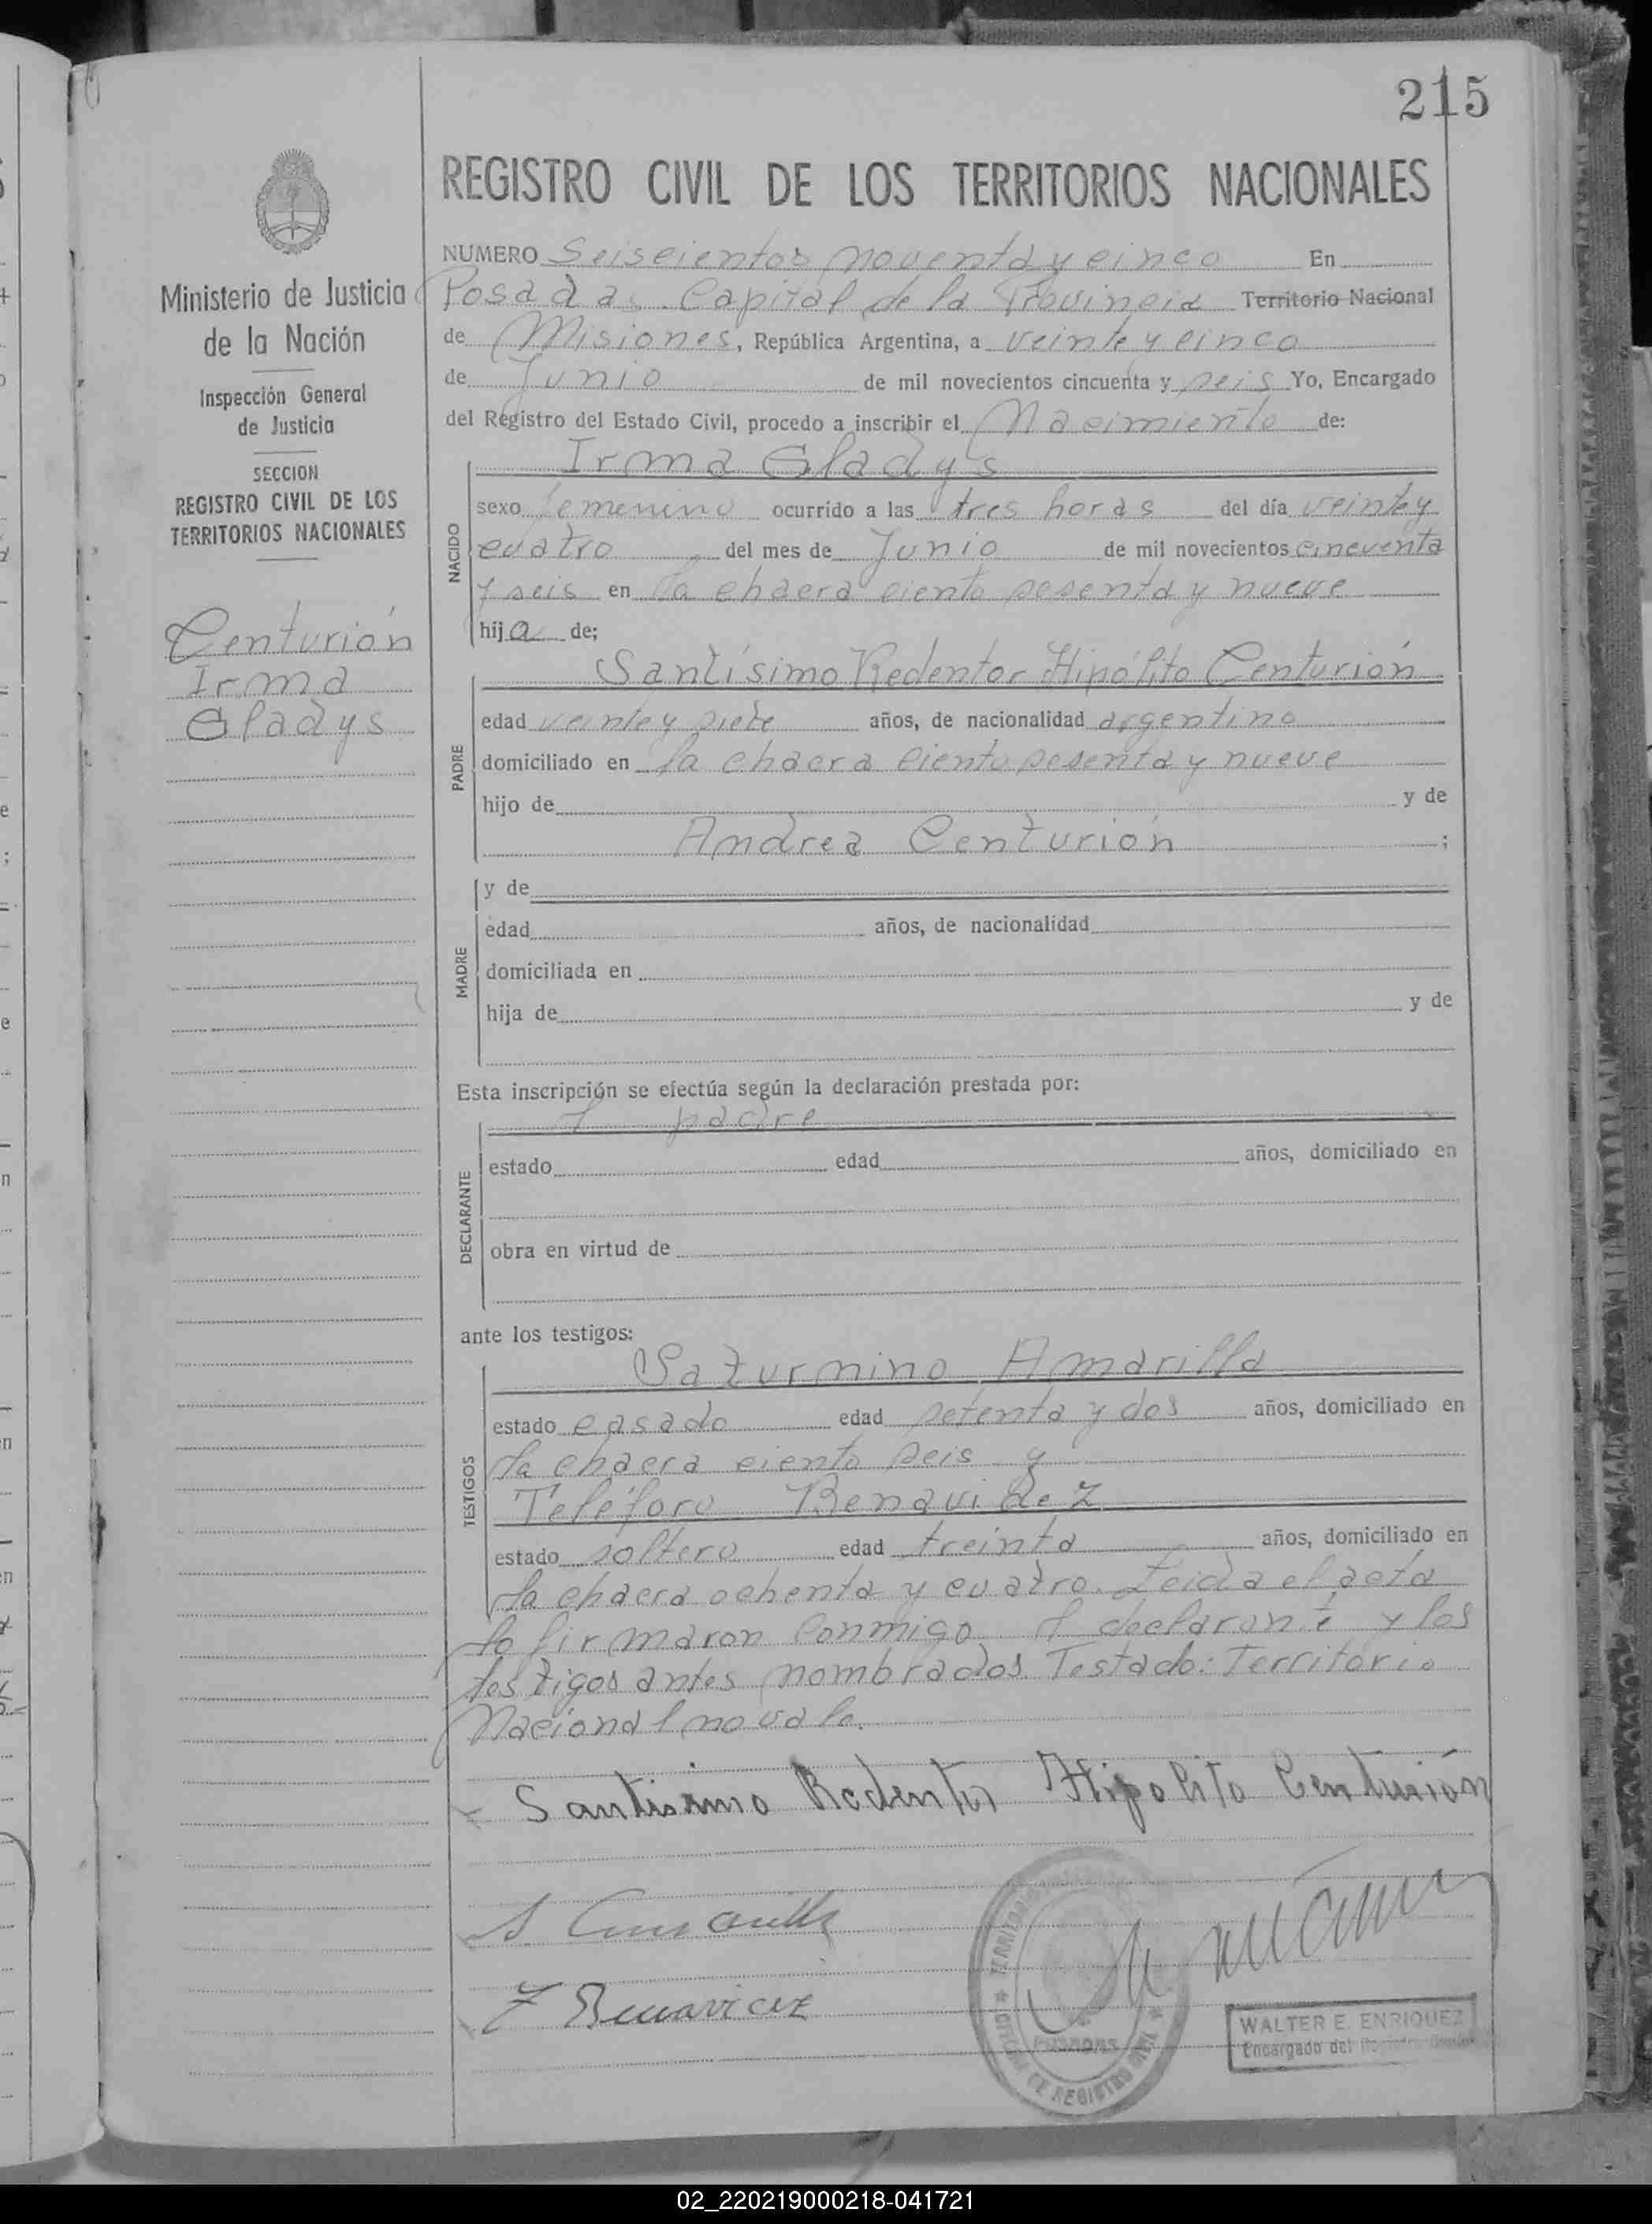 215
REGISTRO CIVIL DE LOS TERRITORIOS NACIONALES
Ministerio de Justicia
de la Nación
Inspección General
de Justicia
SECCION
REGISTRO CIVIL DE LOS
TERRITORIOS NACIONALES
Centurión
Irma
Gladys
NUMERO Seiscientos noventa y cinco En
Posadas Capital de la Provincia Territorio Nacional
de Misiones, República Argentina, a veinte y cinco
de Junio de mil novecientos cincuenta y seis Yo, Encargado
del Registro del Estado Civil, procedo a inscribir el Nacimiento de:
NACIDO
Irma Gladys
sexo femenino ocurrido a las tres horas del día veinte y
cuatro del mes de Junio de mil novecientos cincuenta
y seis en la chacra ciento sesenta y nueve
hija de;
PADRE
Santísimo Redentor Hipólito Centurión
edad veinte y siete años, de nacionalidad argentino
domiciliado en la chacra ciento sesenta y nueve
hijo de y de
Andrea Centurión ;
MADRE
y de
edad años, de nacionalidad
domiciliada en
hija de y de
Esta inscripción se efectúa según la declaración prestada por:
DECLARANTE
padre
estado edad años, domiciliado en
obra en virtud de
ante los testigos:
TESTIGOS
Saturnino Amarilla
estado casado edad setenta y dos años, domiciliado en
la chacra ciento seis y
Teléforo Benavidez
estado soltero edad treinta años, domiciliado en
la chacra ochenta y cuatro. Leida el acta
la firmaron conmigo el declarante y los
testigos antes nombrados Testado: Territorio
Nacional no vale.
Santisimo Redentor Hipolito Centurión
S Amarilla
T Benavidez
POSADAS
WALTER E. ENRIQUEZ
Encargado del
02_220219000218-041721